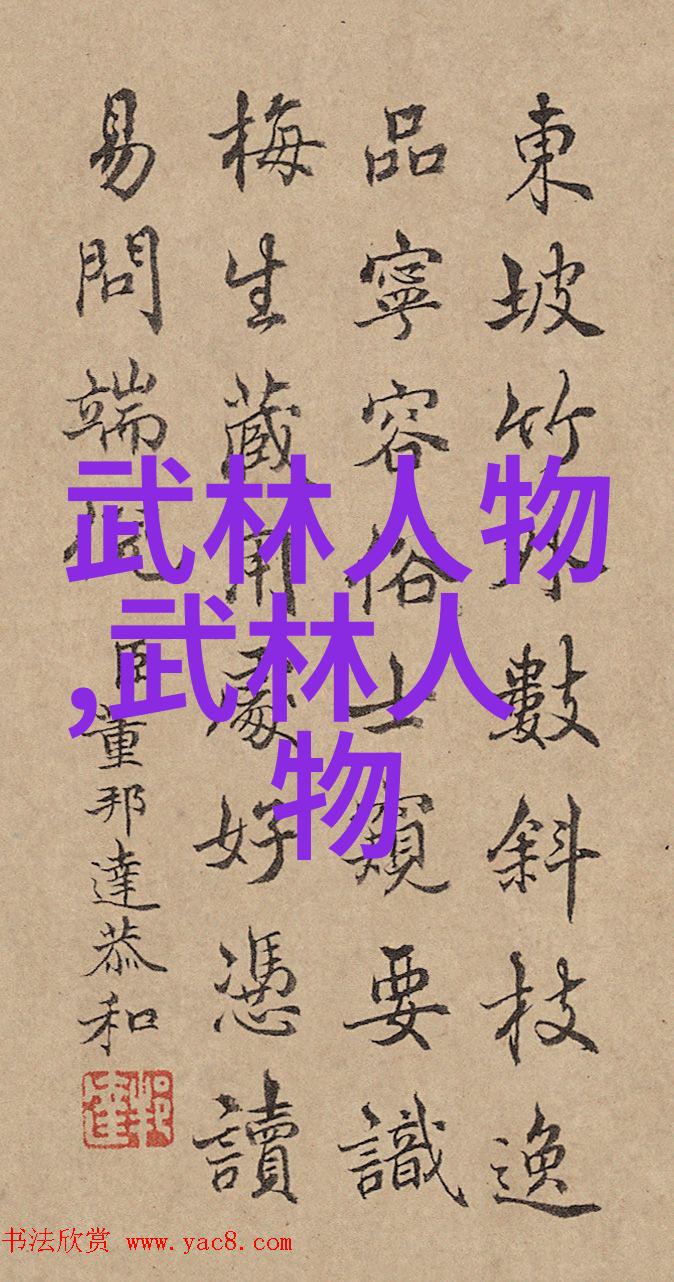 東坡竹外數斜枝逸
品寧容俗士窺要識
梅生藏用處好憑讀
易問端倪 臣董邦達恭和
武林人物
,武林人
物
书法欣赏 www.yac8.com